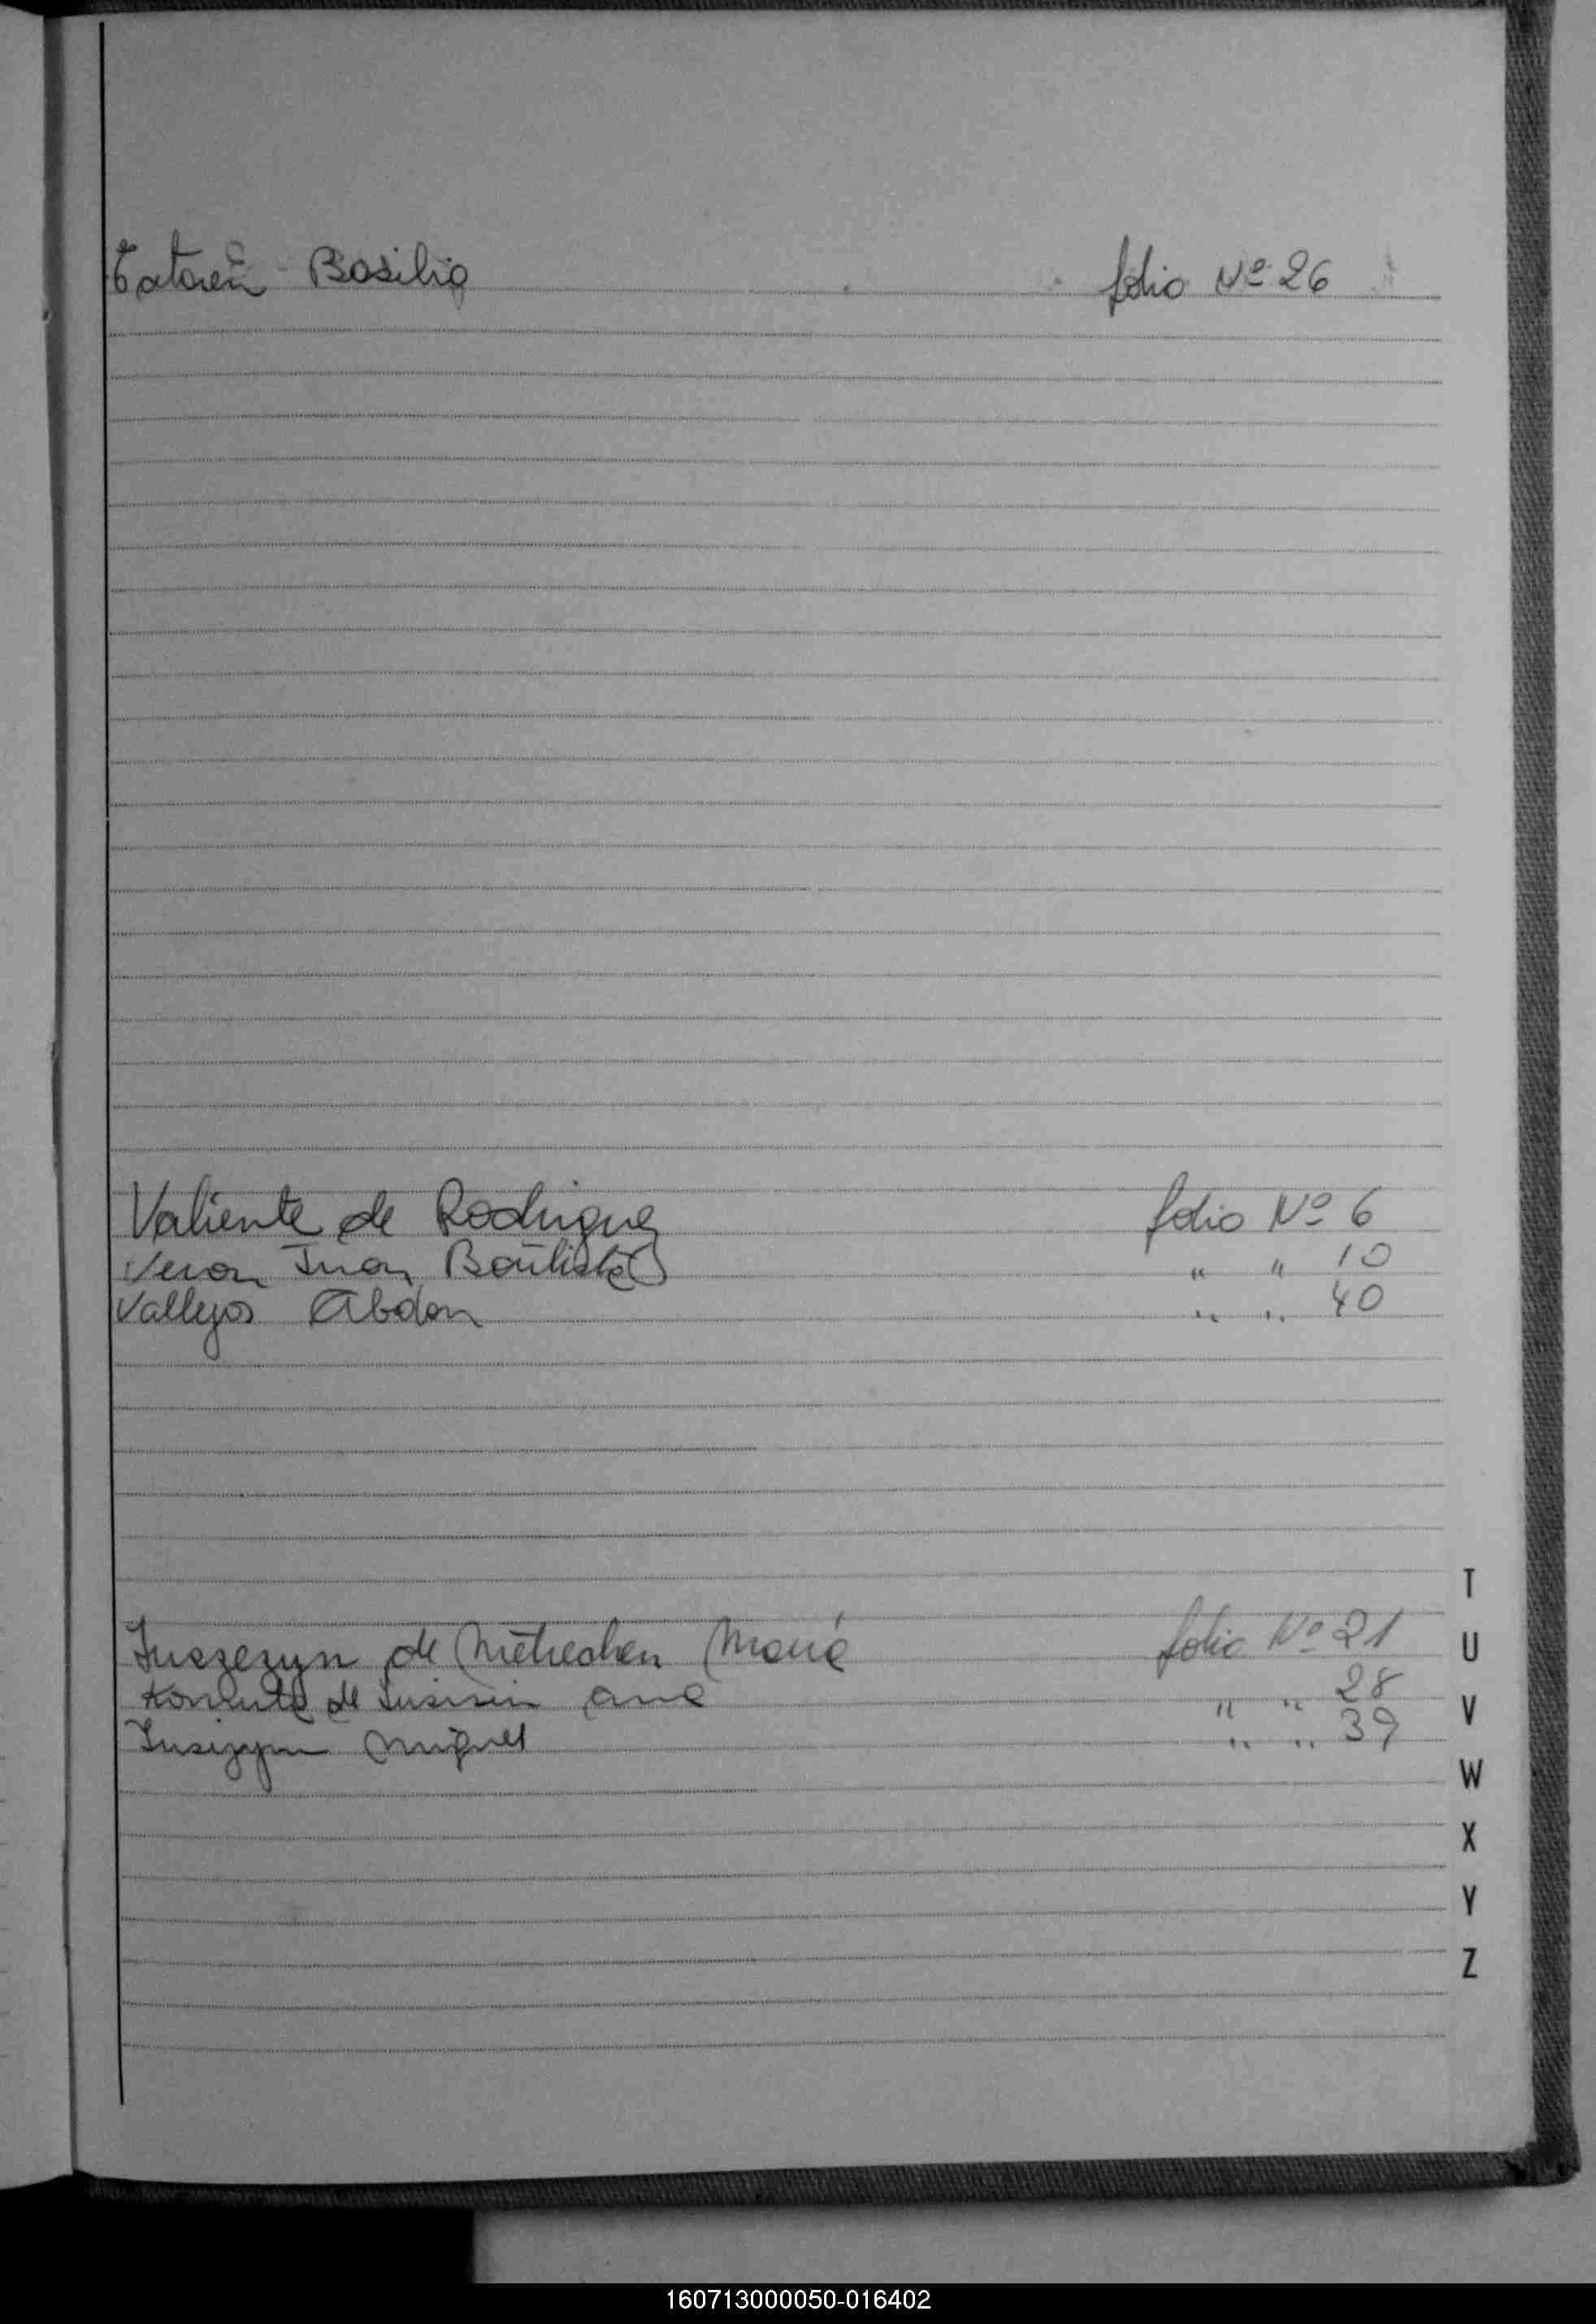 Basilio folio Nº 26
Valiente de Rodriguez folio Nº 6
Veron Juan Bautista " " 10
Vallejos Abdon " " 40
de María folio Nº 21
de Ana " " 28
Miguel " " 39
T
U
V
W
X
Y
Z
160713000050-016402